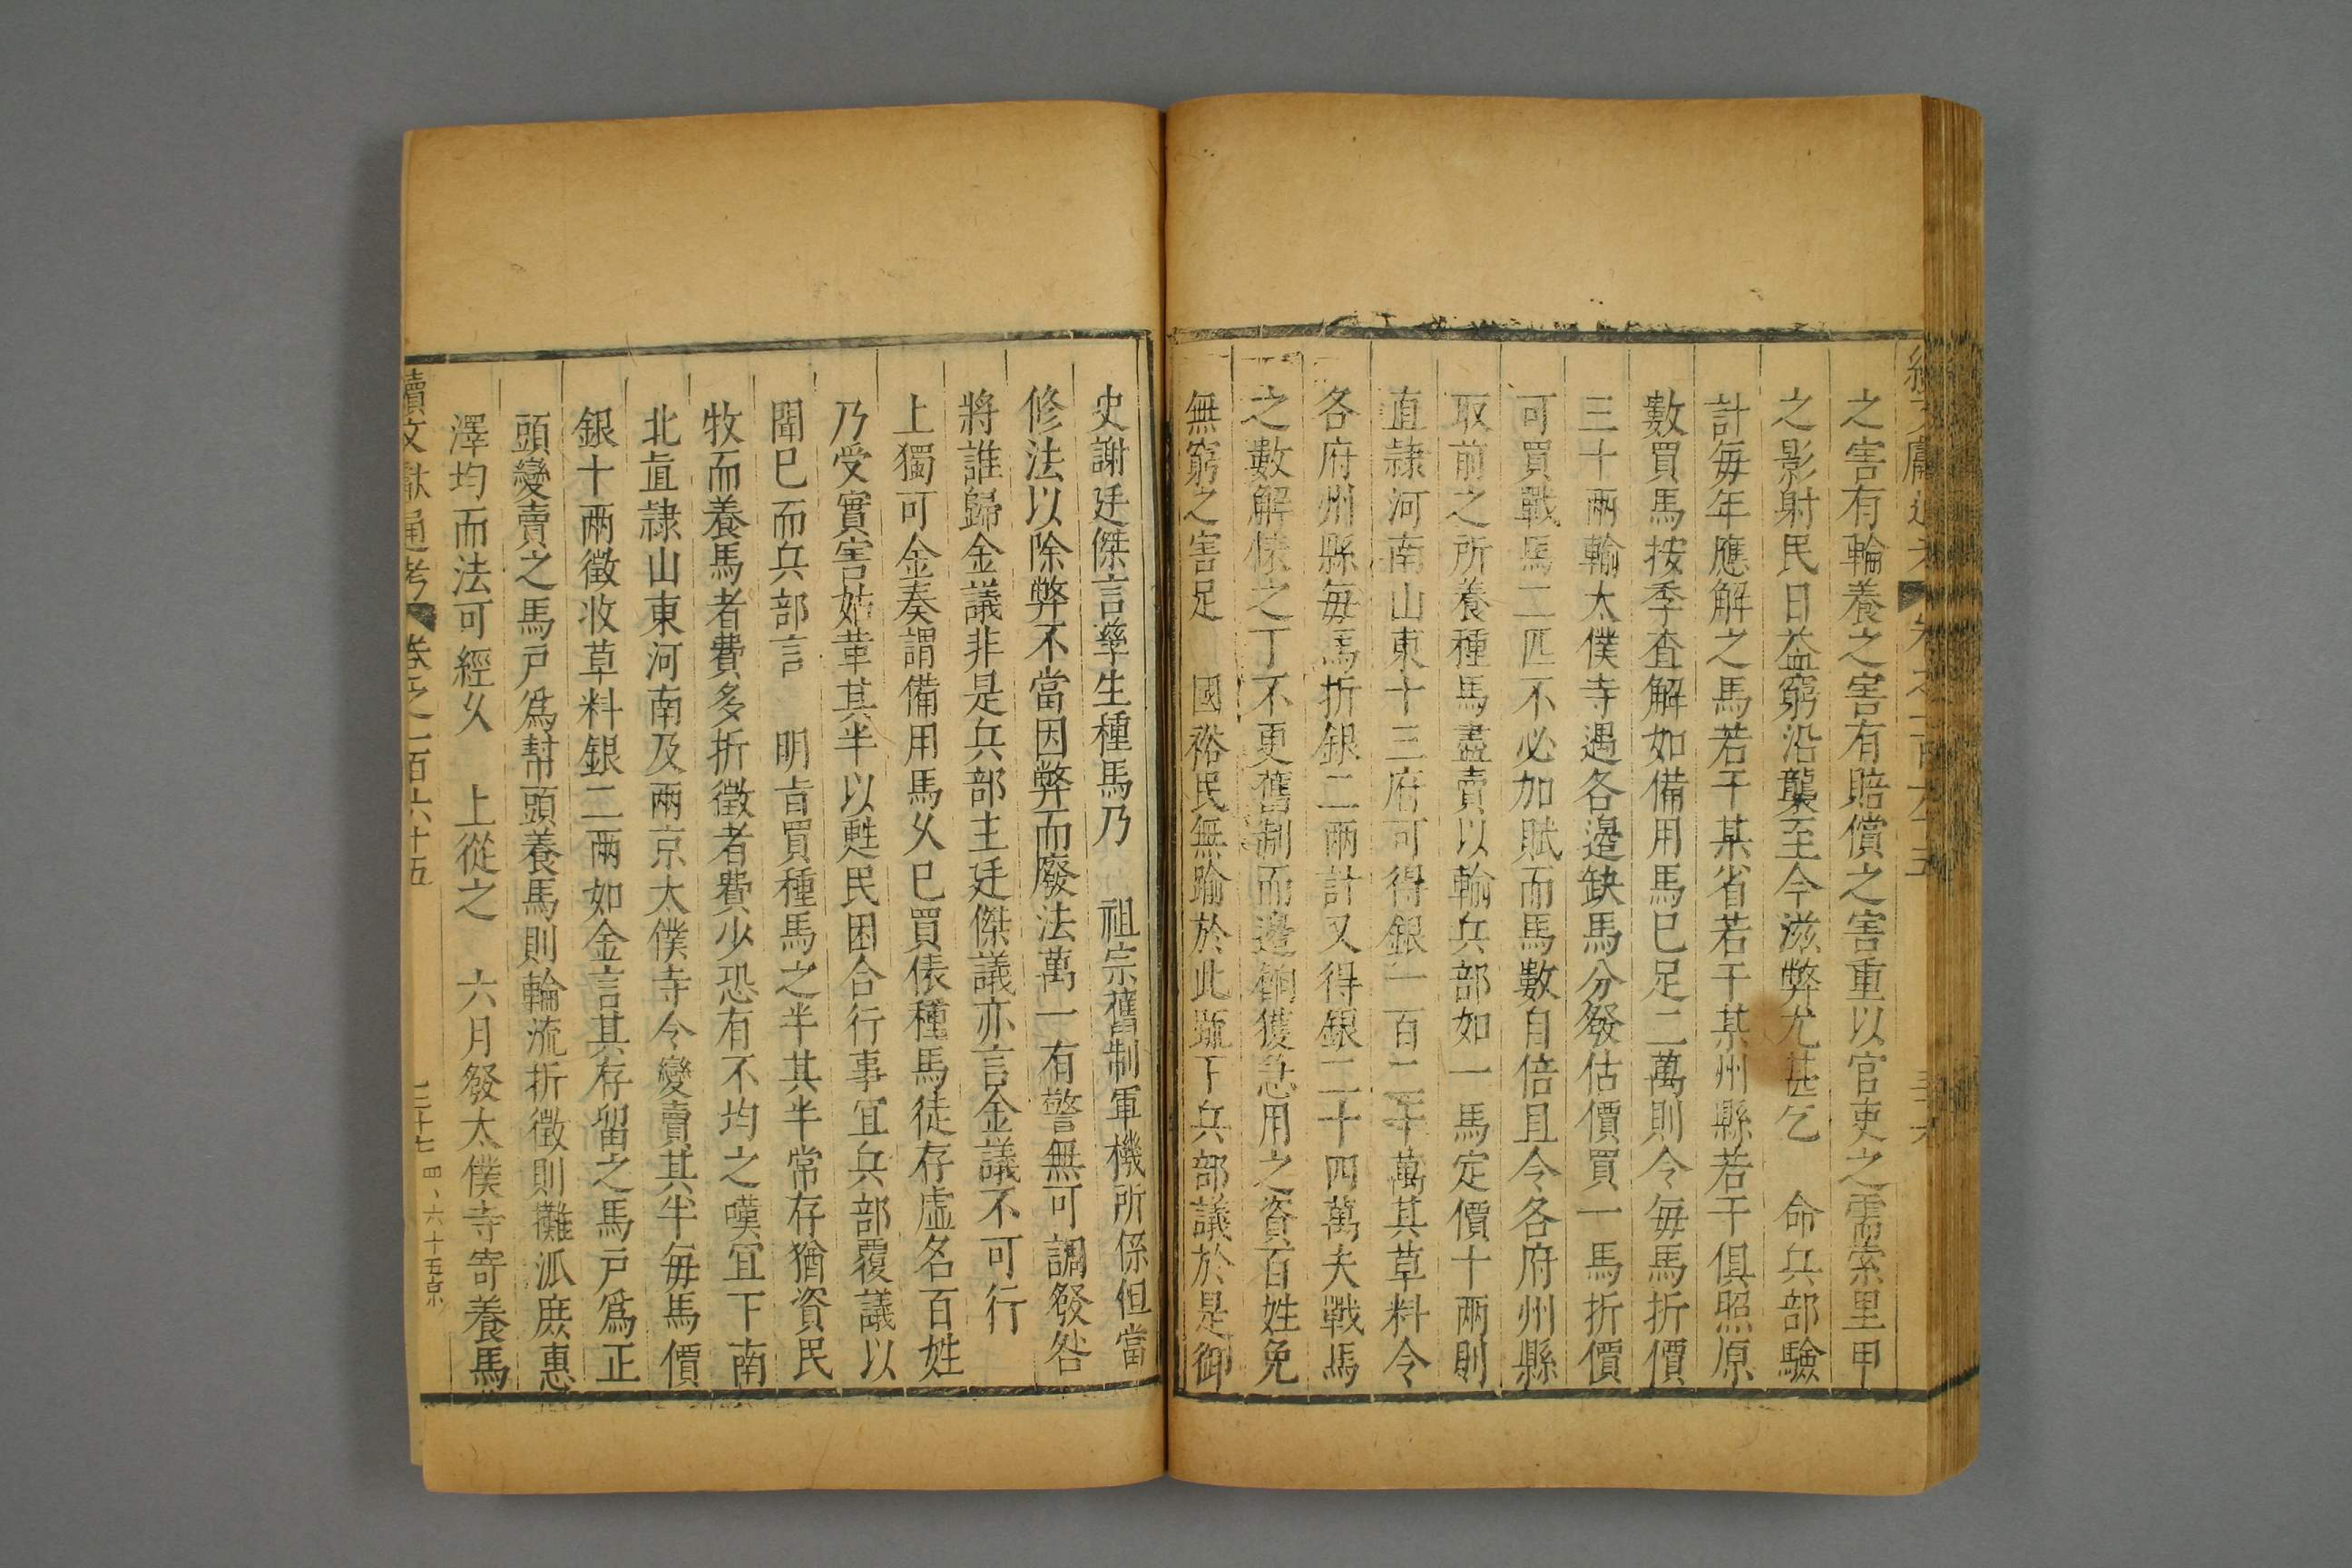 之害有輪養之害有賠償之害重以官吏之需索里甲
之影射民日益窮沿襲至今滋弊尤甚乞　命兵部驗
計每年應解之馬若干某省若干某州縣若干俱照原
數買馬按季查解如備用馬已足二萬則令每馬折價
三十兩輸太僕寺遇各邊缺馬分發估價買一馬折價
可買戰馬二匹不必加賦而馬數自倍且令各府州縣
取前之所養種馬盡賣以輸兵部如一馬定價十兩則
直隸河南山東十三府可得銀一百二十萬其草料令
各府州縣每馬折銀二兩計又得銀二十四萬夫戰馬
之數解俵之丁不更舊制而邊餉獲急用之資百姓免
無窮之害足　國裕民無踰於此疏下兵部議於是御
史謝廷傑言孳生種馬乃　祖宗舊制軍機所係但當
修法以除弊不當因弊而廢法萬一有警無可調發咎
將誰歸金議非是兵部主廷傑議亦言金議不可行
上獨可金奏謂備用馬久已買俵種馬徒存虛名百姓
乃受實害姑革其半以甦民困合行事宜兵部覆議以
聞已而兵部言　明旨買種馬之半其半常存猶資民
牧而養馬者費多折徵者費少恐有不均之嘆宜下南
北直隸山東河南及兩京太僕寺令變賣其半每馬價
銀十兩徵收草料銀二兩如金言其存留之馬戶爲正
頭變賣之馬戶爲幇頭養馬則輪流折徵則攤派庶惠
澤均而法可經久　上從之　六月發太僕寺寄養馬
續文獻通考　卷之一百六十五　三十七　四、六十五京